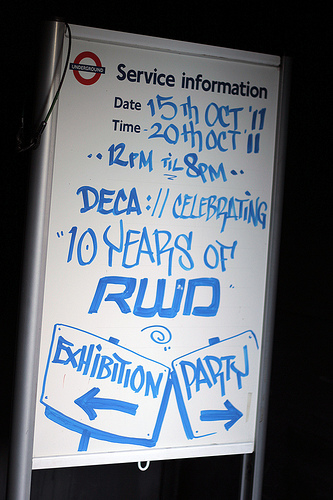 UNDERGROUND
Service information
Date 15th OCT '11
Time - 20th OCT '11
.. 12PM TIL 8PM ..
DECA :// CELEBRATING
"10 YEARS OF
RWD"
EXHIBITION
PARTY